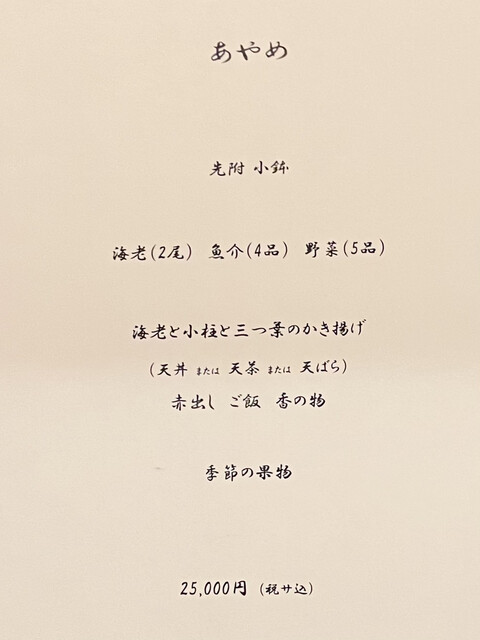 あやめ
先附 小鉢
海老(2尾) 魚介(4品) 野菜(5品)
海老と小柱と三つ葉のかき揚げ
(天丼 または 天茶 または 天ばら)
赤出し ご飯 香の物
季節の果物
25,000円 (税サ込)